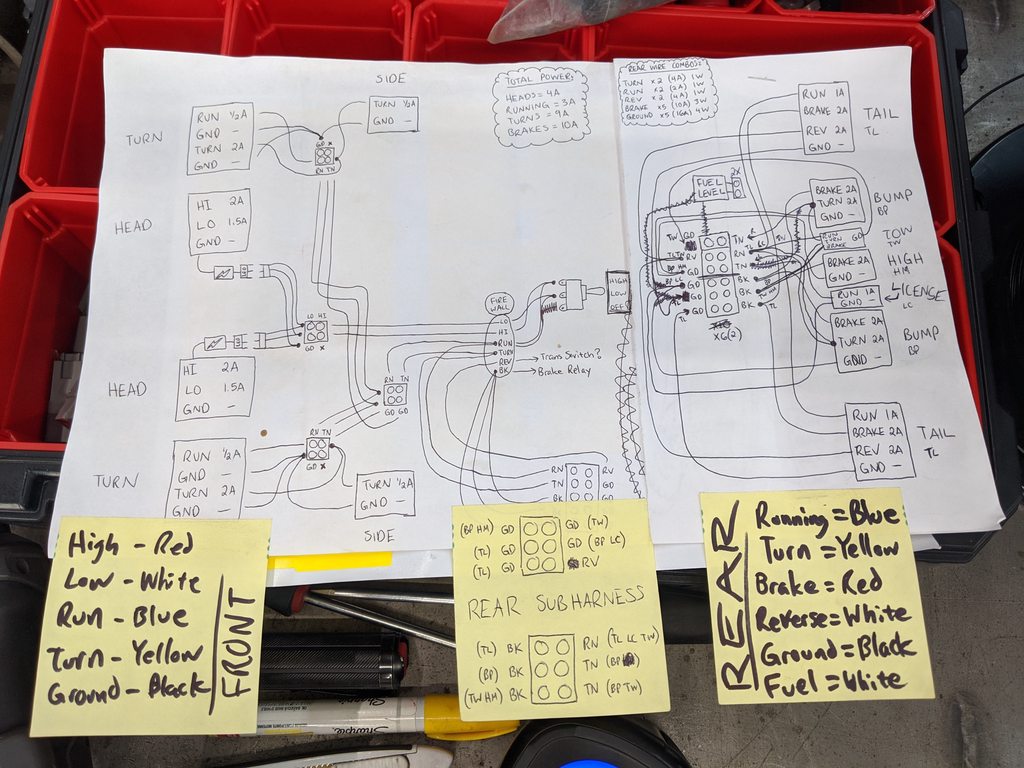 SIDE
TURN
RUN ½A
GND -
TURN 2A
GND -
GD X
RN TN
TURN ½A
GND -
HEAD
HI 2A
LO 1.5A
GND -
LO HI
GD X
HEAD
HI 2A
LO 1.5A
GND -
TURN
RUN ½A
GND -
TURN 2A
GND -
RN TN
GD X
RN TN
GD GD
TURN ½A
GND -
SIDE
TOTAL POWER:
HEADS = 4A
RUNNING = 3A
TURNS = 9A
BRAKES = 10A
FIRE
WALL
LO
HI
RUN
TURN
REV
BK
Trans Switch?
Brake Relay
HIGH
LOW
OFF
RN RV
TN GD
BK GD
REAR WIRE COMBOS:
TURN x2 (4A) 1W
RUN x2 (2A) 1W
REV x2 (4A) 1W
BRAKE x5 (10A) 3W
GROUND x5 (16A) 4W
FUEL
LEVEL
2X
TW GD
TL TN RV
BP HM GD
BP LC GD
GD
TL GD
TN
RN TL LC TW
TN
BK
BK
BK TL
X6(2)
RUN 1A
BRAKE 2A
REV 2A
GND -
TAIL
TL
BRAKE 2A
TURN 2A
GND -
BUMP
BP
RUN GD
TURN
BRAKE
TOW
TW
BRAKE 2A
GND -
HIGH
HM
RUN 1A
GND -
LICENSE
LC
BRAKE 2A
TURN 2A
GND -
BUMP
BP
RUN 1A
BRAKE 2A
REV 2A
GND -
TAIL
TL
High - Red
Low - White
Run - Blue
Turn - Yellow
Ground - Black
FRONT
(BP HM) GD GD (TW)
(TL) GD GD (BP LC)
(TL) GD RV
REAR SUBHARNESS
(TL) BK RN (TL LC TW)
(BP) BK TN (BP)
(TW HM) BK TN (BP TW)
REAR
Running = Blue
Turn = Yellow
Brake = Red
Reverse = White
Ground = Black
Fuel = White
Sharpie